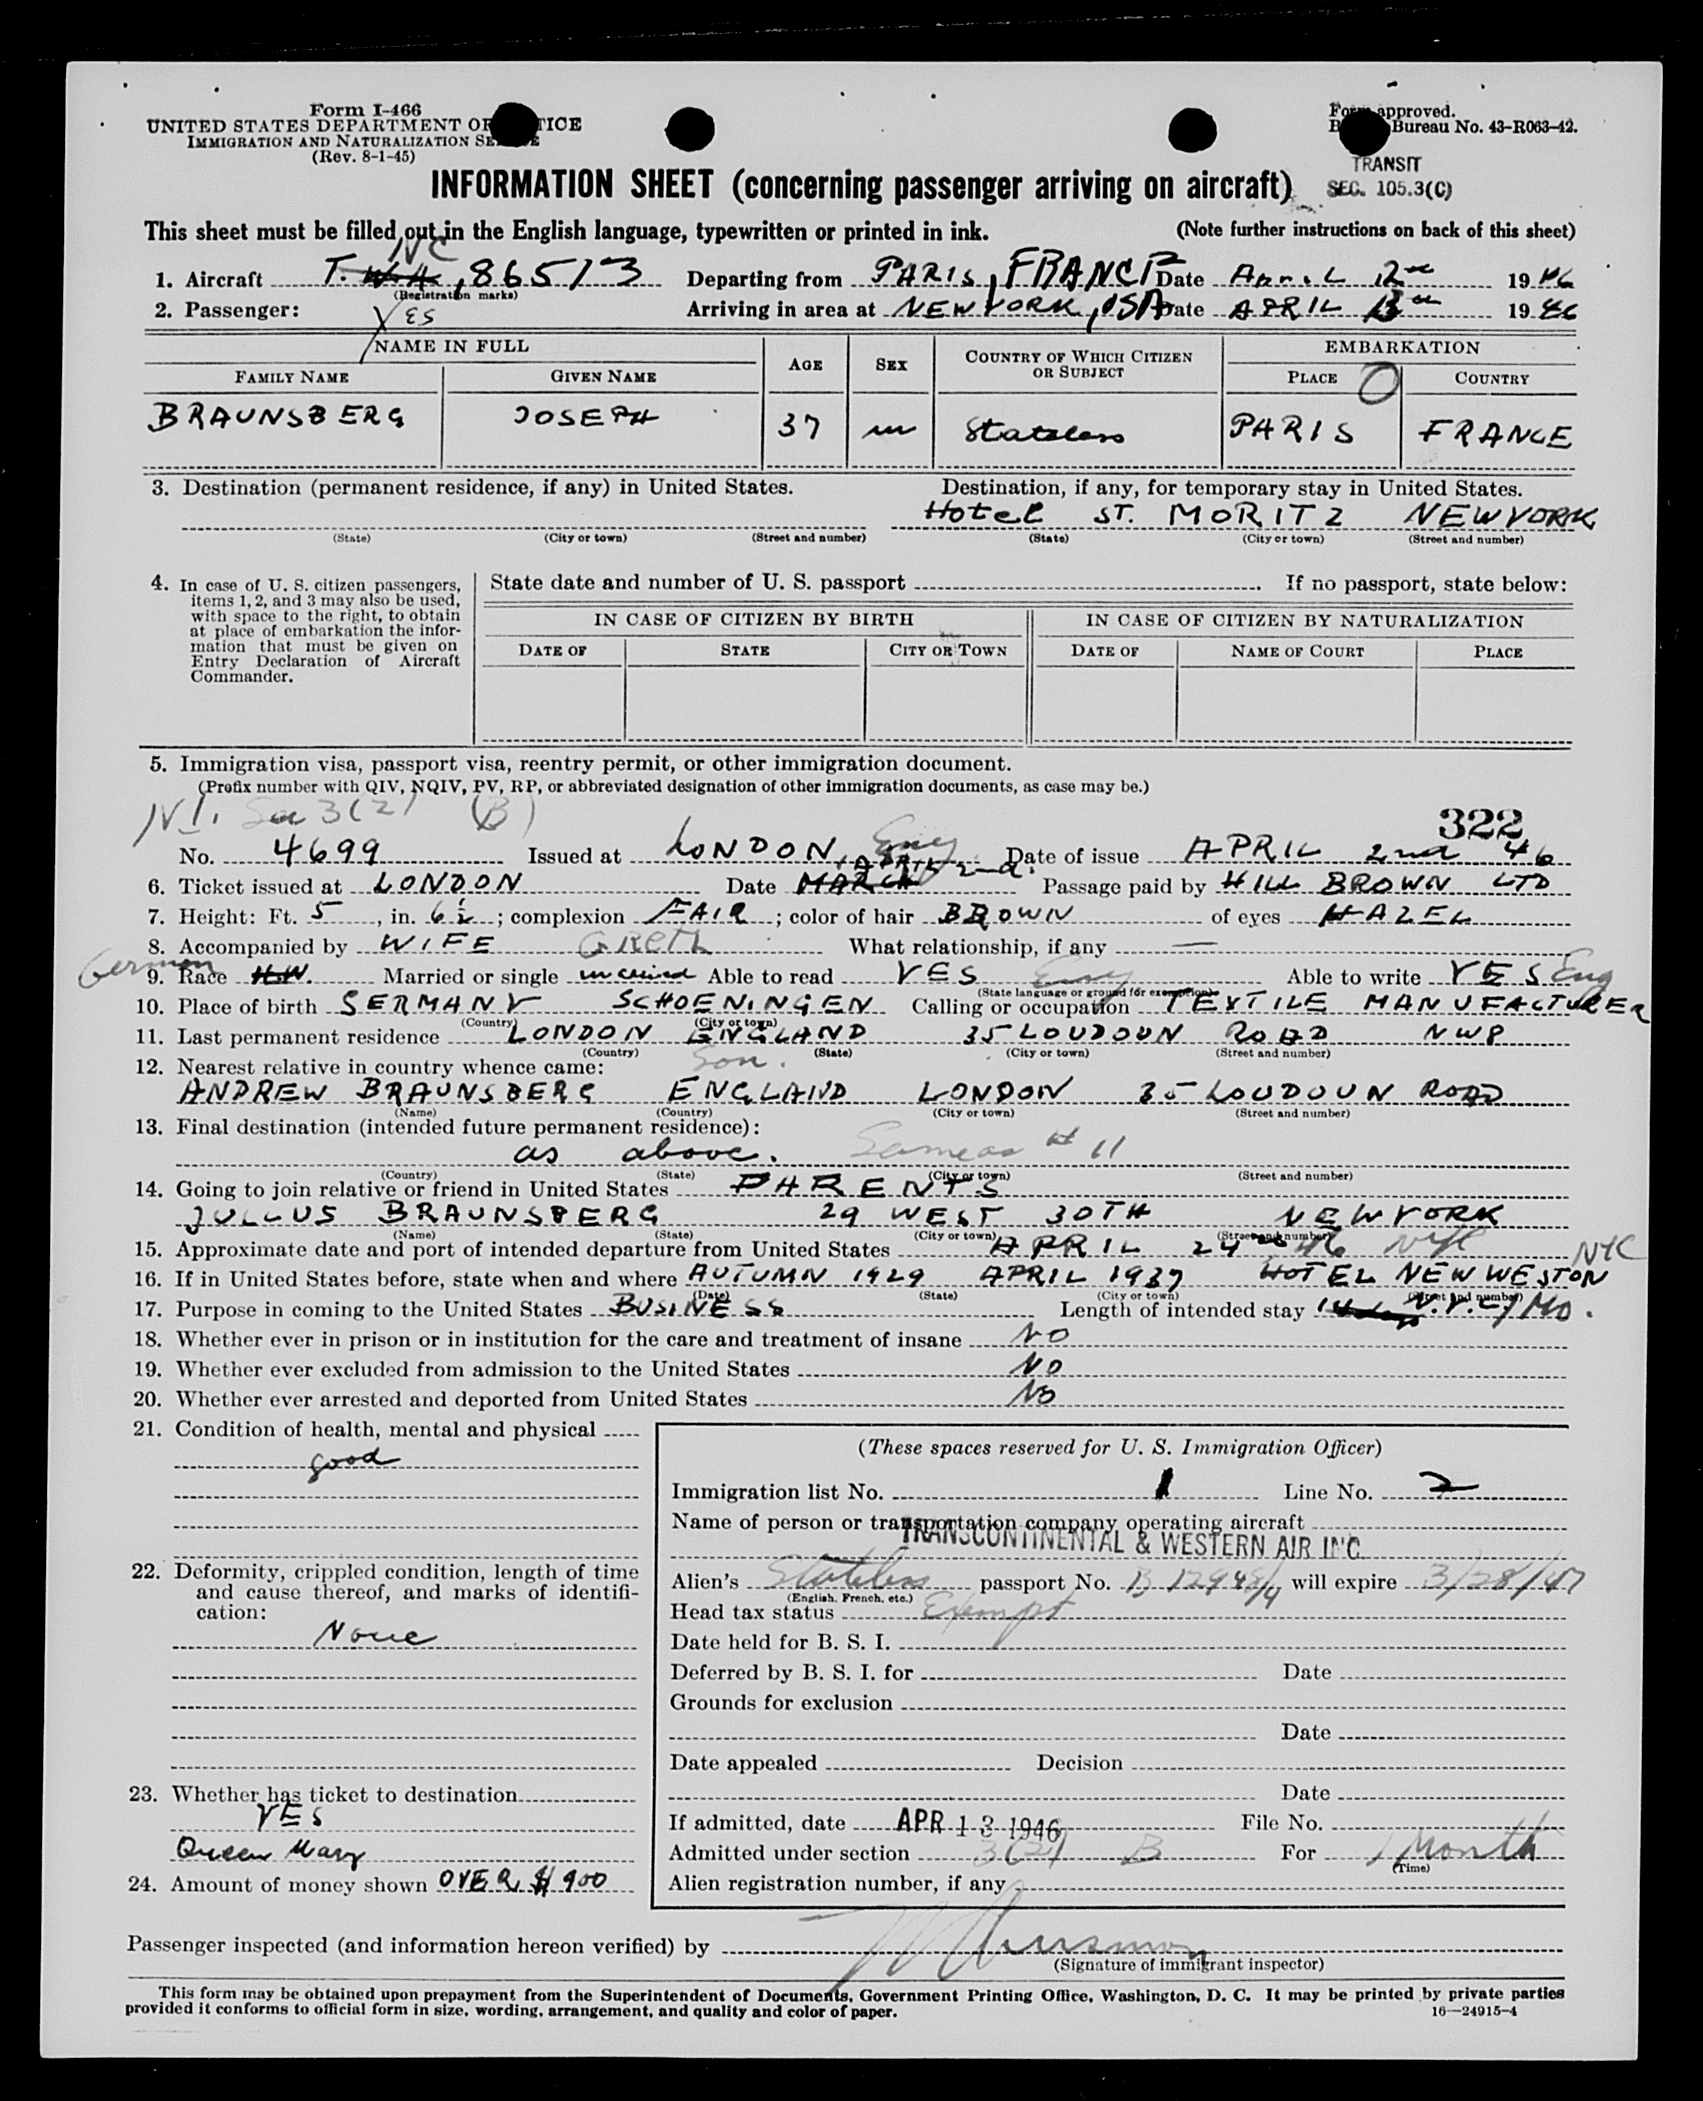 Form I-466
UNITED STATES DEPARTMENT OF JUSTICE
IMMIGRATION AND NATURALIZATION SERVICE
(Rev. 8-1-45)
Form approved.
Bureau No. 43-R063-42.
TRANSIT
SEC. 105.3(C)
INFORMATION SHEET (concerning passenger arriving on aircraft)
This sheet must be filled out in the English language, typewritten or printed in ink. (Note further instructions on back of this sheet)
NC
1. Aircraft T. W.A., 86513 Departing from PARIS, FRANCE Date APRIL 12 1946
(Registration marks)
2. Passenger: YES Arriving in area at NEW YORK, USA Date APRIL 13 1946
NAME IN FULL AGE SEX COUNTRY OF WHICH CITIZEN OR SUBJECT EMBARKATION
FAMILY NAME GIVEN NAME PLACE COUNTRY
BRAUNSBERG JOSEPH 37 m Stateless PARIS FRANCE
3. Destination (permanent residence, if any) in United States. Destination, if any, for temporary stay in United States.
Hotel ST. MORITZ NEW YORK
(State) (City or town) (Street and number) (State) (City or town) (Street and number)
4. In case of U. S. citizen passengers, items 1, 2, and 3 may also be used, with space to the right, to obtain at place of embarkation the information that must be given on Entry Declaration of Aircraft Commander.
State date and number of U. S. passport If no passport, state below:
IN CASE OF CITIZEN BY BIRTH IN CASE OF CITIZEN BY NATURALIZATION
DATE OF STATE CITY OR TOWN DATE OF NAME OF COURT PLACE
5. Immigration visa, passport visa, reentry permit, or other immigration document.
(Prefix number with QIV, NQIV, PV, RP, or abbreviated designation of other immigration documents, as case may be.)
Sec 3(2) (B) 322
No. 4699 Issued at LONDON, Eng Date of issue APRIL 2nd 46
6. Ticket issued at LONDON Date MARCH APRIL 2nd. Passage paid by HILL BROWN LTD
7. Height: Ft. 5, in. 6½; complexion FAIR; color of hair BROWN of eyes HAZEL
8. Accompanied by WIFE GRETH What relationship, if any —
German
9. Race Married or single married Able to read YES Eng Able to write YES Eng
(State language or ground for exemption)
10. Place of birth GERMANY SCHOENINGEN Calling or occupation TEXTILE MANUFACTURER
(Country) (City or town)
11. Last permanent residence LONDON ENGLAND 35 LOUDOUN ROAD NW8
(Country) (State) (City or town) (Street and number)
12. Nearest relative in country whence came: Son.
ANDREW BRAUNSBERG ENGLAND LONDON 35 LOUDOUN ROAD
(Name) (Country) (City or town) (Street and number)
13. Final destination (intended future permanent residence):
as above. Same as # 11
(Country) (State) (City or town) (Street and number)
14. Going to join relative or friend in United States PARENTS
JULIUS BRAUNSBERG 29 WEST 30TH NEW YORK
(Name) (State) (City or town) (Street and number)
15. Approximate date and port of intended departure from United States APRIL 24 46 NYC NYC
16. If in United States before, state when and where AUTUMN 1929 APRIL 1937 HOTEL NEW WESTON
(Date) (State) (City or town) (Street and number)
17. Purpose in coming to the United States BUSINESS Length of intended stay N.Y.C. 1 Mo.
18. Whether ever in prison or in institution for the care and treatment of insane NO
19. Whether ever excluded from admission to the United States NO
20. Whether ever arrested and deported from United States NO
21. Condition of health, mental and physical
good
22. Deformity, crippled condition, length of time and cause thereof, and marks of identification:
None
23. Whether has ticket to destination
YES
Queen Mary
24. Amount of money shown OVER $900
(These spaces reserved for U. S. Immigration Officer)
Immigration list No. 1 Line No. 2
Name of person or transportation company operating aircraft
TRANSCONTINENTAL & WESTERN AIR INC
Alien's Stateless passport No. will expire 3/28/47
(English, French, etc.)
Head tax status Exempt
Date held for B. S. I.
Deferred by B. S. I. for Date
Grounds for exclusion
Date
Date appealed Decision
Date
If admitted, date APR 13 1946 File No.
Admitted under section 3(2) B For 1 Month
(Time)
Alien registration number, if any
Passenger inspected (and information hereon verified) by
(Signature of immigrant inspector)
This form may be obtained upon prepayment from the Superintendent of Documents, Government Printing Office, Washington, D. C. It may be printed by private parties
provided it conforms to official form in size, wording, arrangement, and quality and color of paper. 16—24915-4